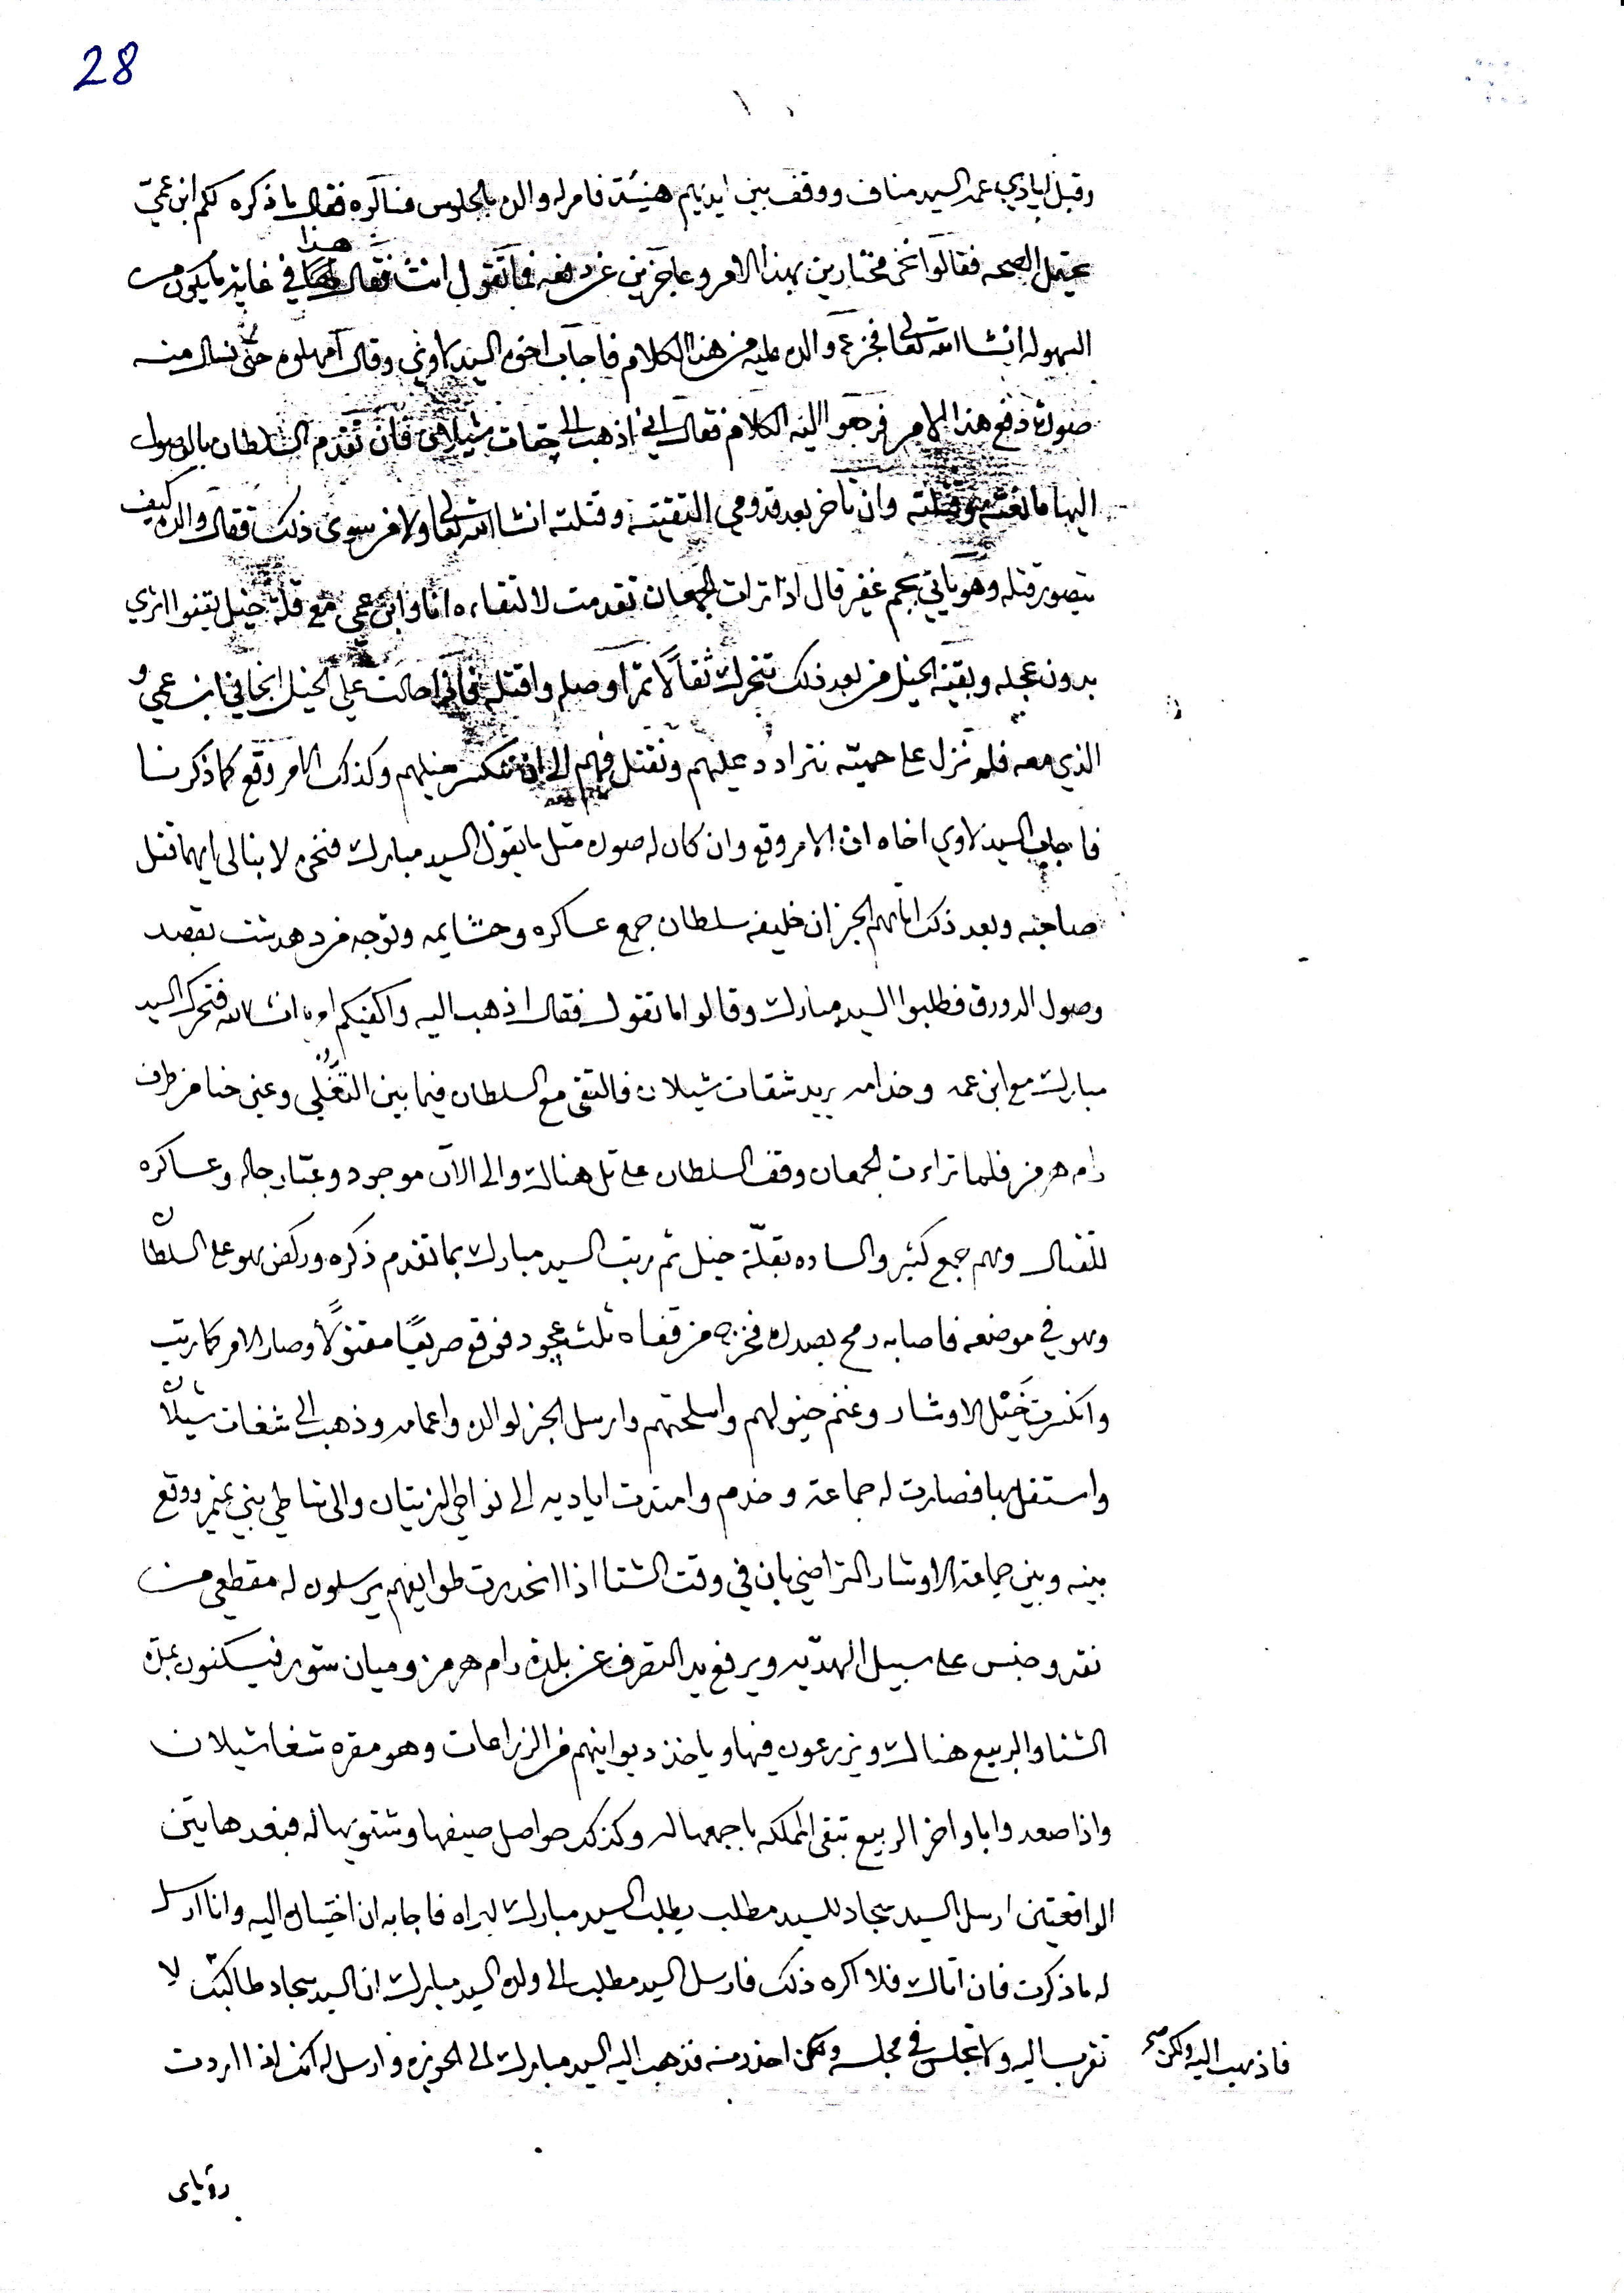 28
وقبل ايادي عمه السيد مناف ووقف بين ايديهم هنيئة فامر له والده بالجلوس فقال ما ذكره لكم ابن عمي
يحتمل الصحه فقالوا نحن مختارين بهذا الامر وعاجزين عن دفعه فما تقول انت فقال هذا في غاية ما يكون من
السهوله انشا الله تعالى فجزع والده عليه من هذا الكلام فاجاب اخوه السيد لاوي وقال امهلوه حتى نسال منه
صورة دفع هذا الامر فرجعوا اليه الكلام فقال اني اذهب الى شيلان فان تقدم السلطان بالوصول
اليها وقتلته وان تاخر بعد قدومي التقيته وقتلته انشا الله تعالى ولا مفر سوى ذلك فقال والده كيف
يتصور قتله وهو ياتي بجم غفير قال اذا ترات الجمعان تقدمت لالتقاءه انا وابن عمي مع قلة خيل يقفوا اثري
بدون عجله وبقية الخيل من بعد ذلك تتحرك ثقالا ثم اوصله واقتله فاني احالت علي الخيل انحاني ابن عمي و
الذي معه فلم نزل على حميته نترادد عليهم ونقتل فيهم الى ان تنكسر خيلهم وكذلك الامر وقع كما ذكرنا
فاجاب السيد لاوي اخاه ان الامر وقع وان كان له صورة مثل ما يقول السيد مبارك فنحن لا نبالى ايهما قتل
صاحبه وبعد ذلك اتاهم الخبر ان خليفه سلطان جمع عساكره وحشايمه وتوجه من دهدشت بقصد
وصول الدورق فطلبوا السيد مبارك وقالوا ما تقول فقال اذهب اليه واكفيكم امره انشا الله فتحرك السيد
مبارك مع ابن عمه وخدامه يريد شقات شيلان فالتقى مع السلطان فيما بين وعين حنا من طرف
رام هرمز فلما تراءت الجمعان وقف السلطان على تل هناك والى الآن موجود وعبّا رجاله وعساكره
للقتال وهم جمع كثير والساده بقلّة خيل ثم رتب السيد مبارك بما تقدم ذكره وركض هو على السلطان
وهو في موضعه فاصابه رمح بصدره فخرج من قفاه ثلث عجود فوقع صريعًا مقتولًا وصار الامر كما رتب
وانكسرت خَيْل الاوشار وغنم خيولهم واسلحتهم وارسل الخبر لوالده واعمامه وذهب الى شغات شيلان
واستقل بها فصارت له جماعة وخدم وامتدت اياديه الى نواحي الزيتان والى شاطي بني تميم ووقع
بينه وبين جماعة الاوشار التراضي بان في وقت الشتا اذا انحدرت طوايفهم يرسلون له مقطعي من
نقد وجنس على سبيل الهديّه ويرفع يد التصرف عن بلدة رام هرمز وميان شور فيسكنون بمدة
الشتا والربيع هناك ويزرعون فيها وياخذ ديوانيهم من الزراعات وهو مقره شغا شيلان
واذا صعدوا باواخر الربيع تبقى المملكه باجمعها له وكذلك حواصل صيفها وشتويها له فبعد هاتين
الواقعتين ارسل السيد سجاد للسيد مطلب يطلب السيد مبارك ليراه فاجابه ان اختياره اليه وانا ارسل
له ما ذكرت فان اتاك فلا اكره ذلك فارسل السيد مطلب الى ولده السيد مبارك ان السيد سجاد طالبك لا
تقرب اليه ولا تجلس في مجلسه ولكن احذر منه فذهب اليه السيد مبارك الى الحويزه وارسل له انك اذا اردت
فاذهب اليه ولكن صح
رؤياى